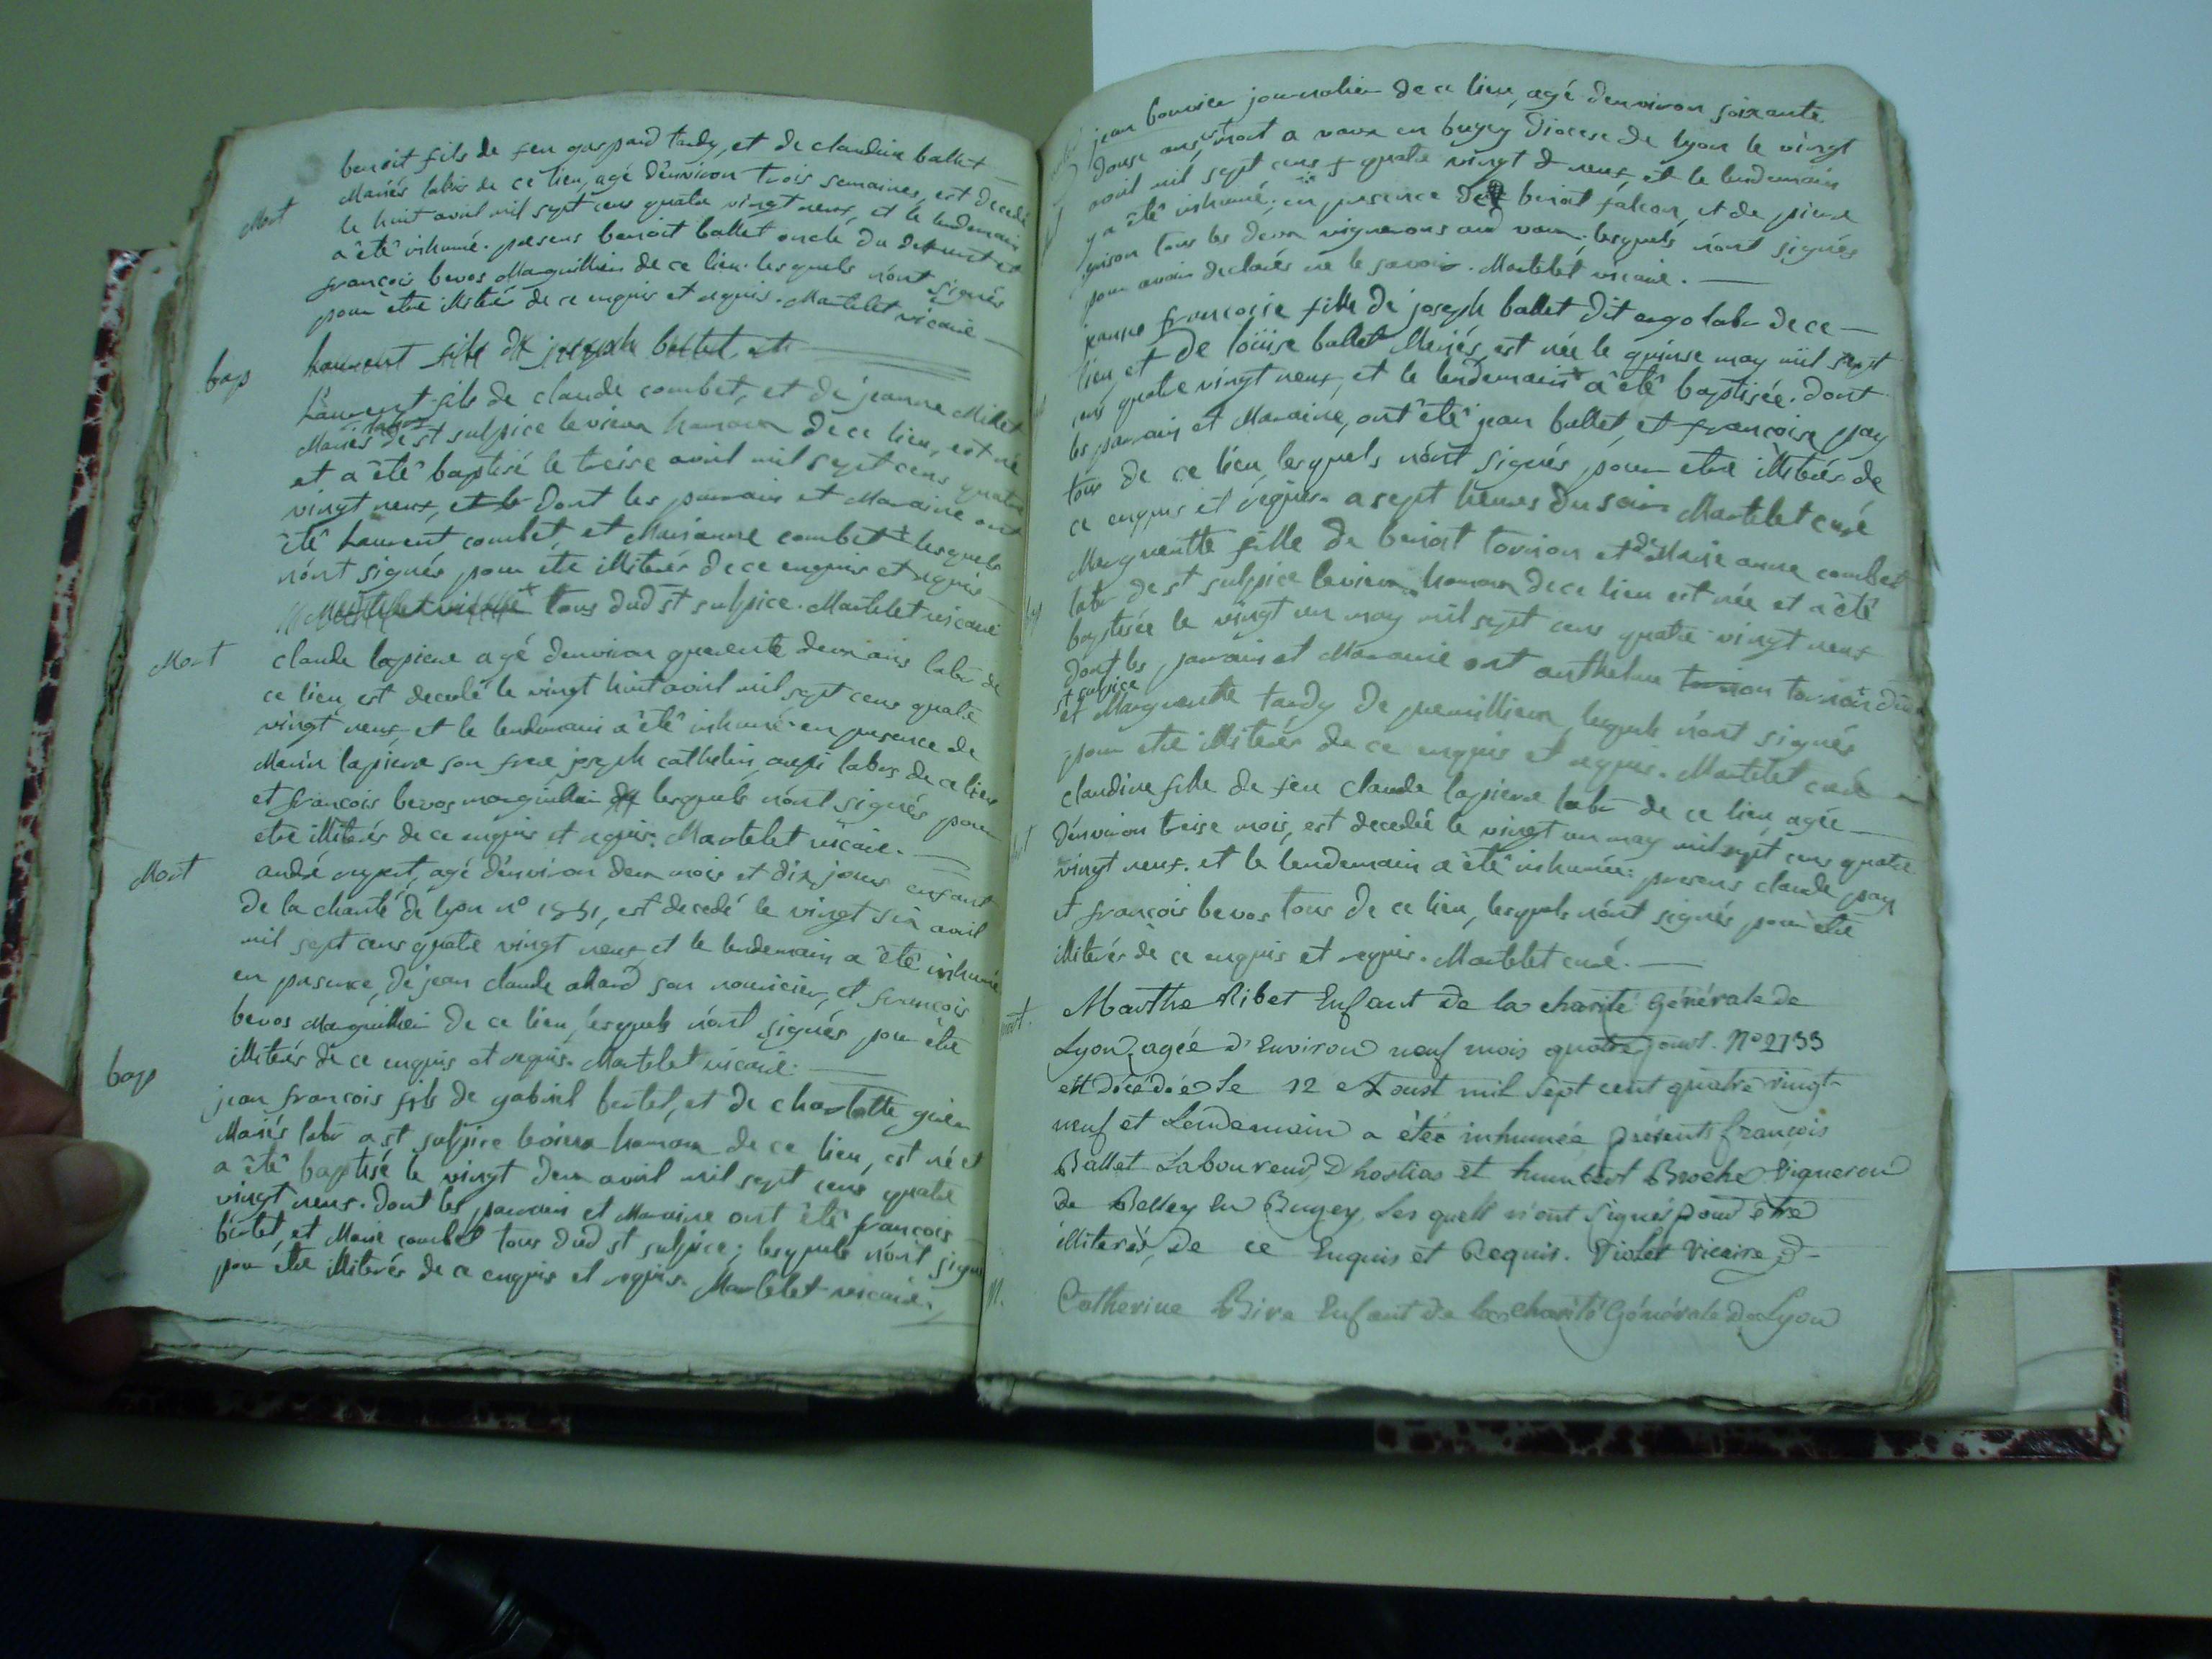 Mort
benoit fils de feu gaspard tardy, et de claudine ballet
Mariés labrs de ce lieu, agé d'environ trois semaines, est decedé
le huit avril mil sept cens quatre vingt neuf, et le lendemain
a êtê inhumé. presens benoit ballet oncle du defunt et
françois bevos Marguillier de ce lieu. lesquels n'ont signés
pour être illiterés de ce enquis et requis. Martelet vicaire
bap
laurent fils de joseph ballet, et
Laurent fils de claude combet, et de jeanne Millet
Mariés labrs de st sulpice le vieux hamaux de ce lieu, est né
et a êtê baptisé le treise avril mil sept cens quatre
vingt neuf, et le dont les parrain et Maraine ont
êtê Laurent combet et Marianne combet + lesquels
n'ont signés pour être illiterés de ce enquis et requis
Martelet vicaire + tous dud st sulpice. Martelet vicaire
Mort
claude lapierre agé d'environ quarente deux ans labr de
ce lieu, est decedé le vingt huit avril mil sept cens quatre
vingt neuf, et le lendemain a êtê inhumé en presence de
Marin lapierre son frere joseph cathelin, aussi labrs de ce lieu
et françois bevos marguillier lesquels n'ont signés pour
etre illiterés de ce enquis et requis. Martelet vicaire.
Mort
andré, agé d'environ deux mois et dix jours enfant
de la charité de lyon no, est decedé le vingt six avril
mil sept cens quatre vingt neuf, et le lendemain a êtê inhumé
en presence, de jean claude ahard son nouricier, et françois
bevos Marguillier de ce lieu, lesquels n'ont signés pour être
illiterés de ce enquis et requis. Martelet vicaire.
bap
jean françois fils de gabriel bertet, et de charlotte
Mariés labr a st sulpice le vieux hamaux de ce lieu, est né et
a êtê baptisé le vingt deux avril mil sept cens quatre
vingt neuf. dont les parrain et Maraine ont êtê françois
bertet, et Marie combet tous dud st sulpice; lesquels n'ont signés
pour être illiterés de ce enquis et requis. Martelet vicaire.
jean bouvier journalier de ce lieu, agé d'environ soixante
douse ans, mort a vaux en bugey diocese de lyon le vingt
avril mil sept cens quatre vingt neuf, et le lendemain
y a êtê inhumé; en presence de benoit falcon, et de pierre
grison tous les deux vignerons aud vaux; lesquels n'ont signés
pour avoir declarés ne le savoir. Martelet vicaire.
jeanne françoise fille de joseph ballet dit labr de ce
lieu, et de loüise ballet Mariés, est née le quinse may mil sept
cens quatre vingt neuf, et le lendemain a êtê baptisée. dont
les parrain et Maraine, ont êtê jean ballet, et françoise pay
tous de ce lieu, lesquels n'ont signés pour etre illiterés de
ce enquis et requis. a sept heures du soir Martelet curé
Margueritte fille de benoit tornion et de Marie anne combet
labr de st sulpice le vieux hamaux de ce lieu est née et a êtê
baptisée le vingt un may mil sept cens quatre vingt neuf
dont les parrain et Maraine ont anthelme tornion tornion dud
st sulpice
et Margueritte tardy de premillieux, lesquels n'ont signés
pour etre illiterés de ce enquis et requis. Martelet curé
claudine fille de feu claude lapierre labr de ce lieu, agée
d'environ treise mois, est decedée le vingt un may mil sept cens quatre
vingt neuf. et le lendemain a êtê inhumée: presens claude pay
et françois bevos tous de ce lieu, lesquels n'ont signés pour etre
illiterés de ce enquis et requis. Martelet curé.
mort.
Marthe Ribet Enfant de la charité Générale de
Lyon, agée d'Environ neuf mois quatre jours. No 2733
est décédée Le 12 Aoust mil Sept cent quatre vingt
neuf et Lendemain a étée inhumée présents françois
Ballet Laboureur D'hostias et humbert Broche Vigneron
de Belley En Bugey, Les quels n'ont Signés pour être
illiterés, De ce Enquis et Requis. Violet Vicaire
M.
Catherine Bire Enfant de la charité Générale De Lyon